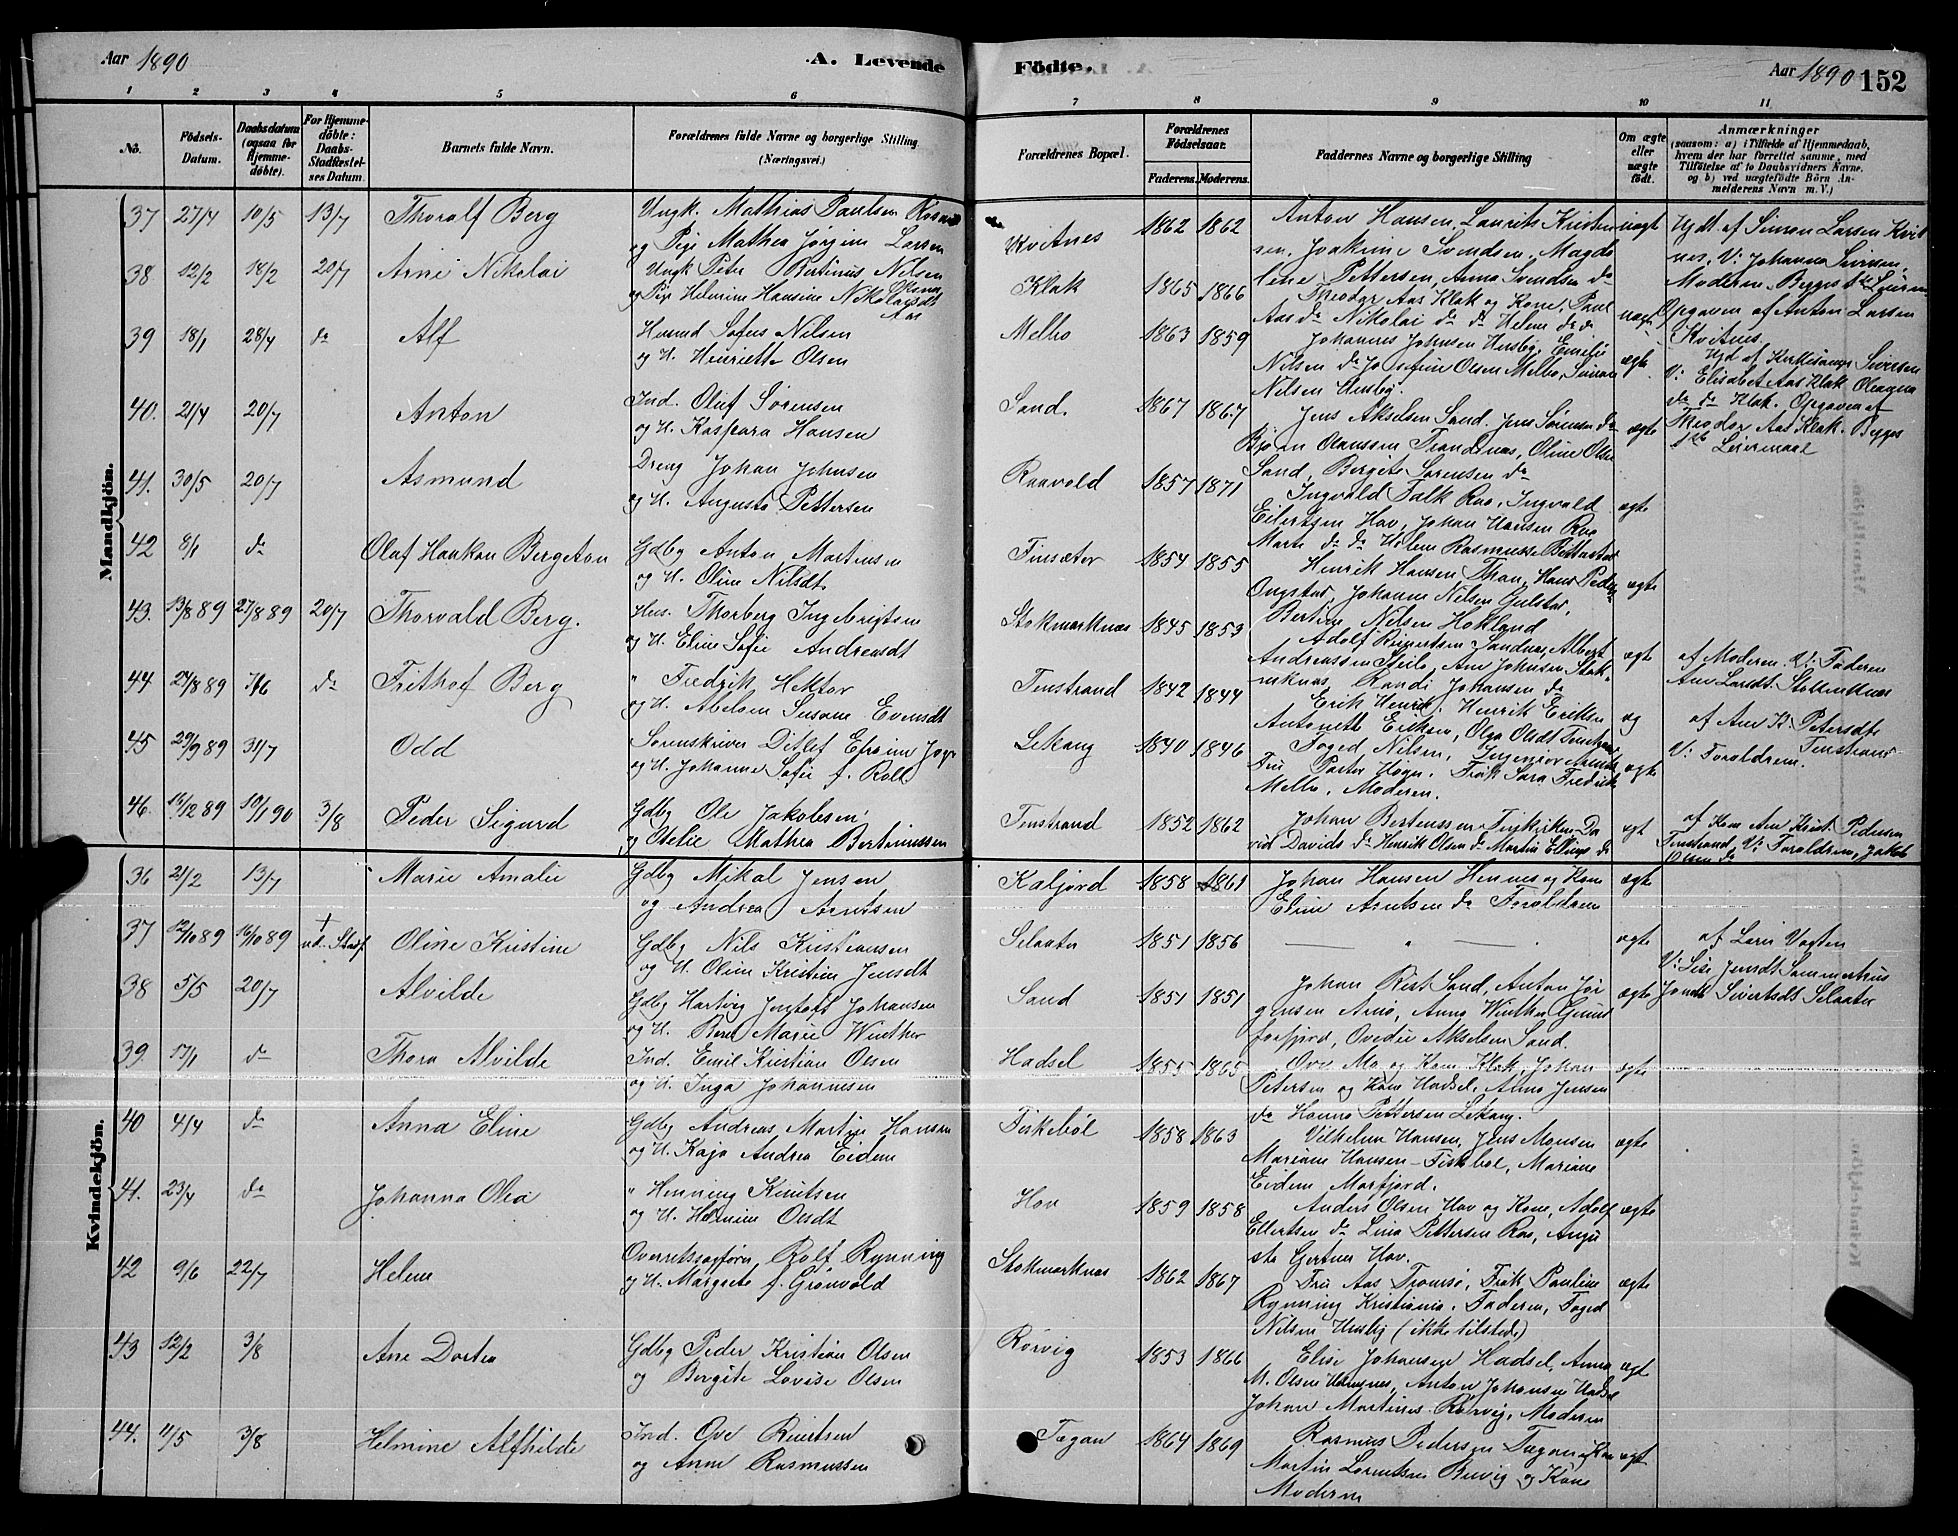 Aar 1890
A. Levende
Födte.
Aar 1890 152
1 2 3 4 5 6 7 8 9 10 11
No.
Födsels-
Datum.
Daabsdatum
(ogsaa for
Hjemme-
döbte).
For Hjemme-
döbte:
Daabs-
Stadfæstel-
ses Datum.
Barnets fulde Navn.
Forældrenes fulde Navne og borgerlige Stilling
(Næringsvei.)
Forældrenes Bopæl.
Forældrenes
Födselsaar.
Faderens. Moderens.
Faddernes Navne og borgerlige Stilling
Om ægte
eller
uægte
født.
Anmærkninger
(saasom: a) i Tilfælde af Hjemmedaab,
hvem der har forrettet samme, med
Tilföielse af to Daabsvidners Navne,
og b) ved uægtefödte Börn An-
melderens Navn m. V.)
Mandkjön.
37 27/4 10/5 13/7 Thoralf Berg
Ungk. Mathias Paulsen
og Pige Mathea Jørgine Larsen
Kvitnes 1862 1862
Anton Hansen, Laurits Kristen
sen, Joakime Svendsen, Magda
lene Pettersen, Anna Svendsen do
uægte
Hjdt. af Simon Larsen Kvit
nes, V: Johanna Siversen,
Moderen. Begges 1ste Leierm.
Opgaven af Anton Larsen
Kvitnes.
38 12/2 18/2 20/7 Arne Nikolai
Ungk Peter Bertinus Nilsen
og Pige Helmine Hansine Nikolaisdt
Aas
Klak 1865 1866
Theodor Aas Klak og Kone, Paul
Aas do Nikolai do do Helene do do
uægte
Hjd af Kirkesanger Siversen
V: Elisabet Aas Klak
do do Klak. Opgaven af
Theodor Aas Klak. Begges
1ste Leiermaal
39 18/1 28/4 do Alf
Husmd Sofus Nilsen
og H. Henriette Olsen
Melbo 1863 1859
Johannes Johnsen Husby, Emilie
Nilsen do Josefine Olsen Melbo, Simon
Nilsen Husby.
ægte
40. 21/4 20/7 Anton
Ind. Oluf Sørensen
og H. Kaspara Hansen
Sand. 1867 1867
Jens Akselsen Sand. Jens Sørensen do
Bjørn Olaussen Trandenes, Oline Olsen
Sand, Bergite Sørensen do
ægte
41. 30/5 20/7 Asmund
Dreng Johan Johnsen
og H. Augusta Pettersen
Raavold 1857 1871
Ingvald Falk Rao, Ingvald
Eilertsen Hav, Johan Hansen Rao
Marte do do Helene Rasmussen
ægte
42 8/1 do Olaf Haakon Bergeton
Gdbg Anton Mortensen
og H. Oline Nilsdt.
Finsæter 1854 1855
Henrik Hansen Than, Hans Peder
Ongstad, Johanne Nilsen Gulstad,
Bertine Nilsen Hokland
ægte
43. 13/8 89 27/8 89 20/7 Thorvald Berg.
Hus. Thorberg Ingebrigtsen
og H. Eline Sofie Andreasdt
Stokmarknes 1845 1853
Adolf Reinertsen Sandnes, Albert
Andreassen Steilo, Ane Johnsen Stok-
marknes Randi Johansen do
ægte
af Moderen V: Faderen
Ane Larsdt. Stokmarknes
44 24/8 89 7/6 do Frithof Berg
" Fredrik Hektor
og H. Abelone Susane Evensdt
Tenstrand 1842 1844
Erik Henrik. Henrik Eriksen
Antonette Eriksen, Olga Olsdt Tenstrand
æg
af Ane K. Petersdt
Tenstrand
V: Forældrene.
45 29/9 89 31/7 Odd
Sorenskriver Ditlef Efraim
og H. Johanne Sofie f. Roll
Lekang 1840 1846
Foged Nilsen, Ingeniør
Fru Pastor Høgn. Frøk. Sara Fredrik
Melbo, Moderen.
ægte
46. 15/12 89 19/1 90 3/8 Peder Sigurd
Gdbg Ole Jakobsen,
og Otelie Mathea Bertinussen
Tenstrand 1852 1862
Johan Bertinussen Da
vid Davids do Henrik Olsen do Martin Ellings do
egt
af Kone Ane Krist. Pedersen
Tenstrand, V: Forældrene, Jakob
Olsen do
Kvindekjön.
36 21/2 13/7 Marie Amalie
Gdbg Mikal Jensen
og Andrea Arntsen
Kaljord 1858 1861
Johan Hansen Hennes og Kone
Eline Arntsen do Forældrene
ægte
37 12/10 89 16/10 89 † ud. Stadf Oline Kristine
Gdbg Nils Kristiansen
og H. Oline Kristine Jensdt
Selaater 1851 1856
— " —
ægte
af Lars Vogten
V: Lise Jensdt Sommerhus
Sivertsdt Selaater
38 5/5 20/7 Alvilde
Gdbg Hartvig Jentoft Johansen
og H. Berit Marie Winther
Sand 1851 1851
Johan Rist Sand, Anton Jør
gensen Arnø, Anna Winther
forfjord, Ovedie Akselsen Sand.
ægte
39. 17/1 do Thora Alvilde
Ind. Emil Kristian Olsen
og H. Inga Johannesen
Hadsel 1855 1865
Ove Mo og Kone Klok, Johan
Petersen og Kone Hadsel, Anna Jensen
do Hanna Pettersen Lekang.
ægte
40 4/4 do Anna Eline
Gdbg Andreas Martin Hansen
og H. Kaja Andrea Eidem
Fiskebøl 1858 1863
Vilhelm Hansen, Jens Monsen
Mariane Hansen - Fiskebøl, Mariane
Eidem Morfjord.
ægte
41. 23/4 do Johanna Olea
" Henning Knutsen
og H. Helmine Olsdt
Hov 1859 1858
Anders Olsen Hov og Kone, Adolf
Ellertsen do Lina Pettersen Rao, Augu
sta Gertner Hov.
ægte
42 9/6 22/7 Helene
Overretssagfører Rolf Rynning
og H. Margrete f. Grønvold
Stokmarknes 1862 1867
Fru Aas Tromsø, Frøk Pauline
Rynning Kristiania. Faderen, Foged
Nilsen Husby (ikke tilstede)
ægte
43 12/2 3/8 Ane Dortea
Gdbg Peder Kristian Olsen
og Bergite Lovise Olsen
Rørvig 1853 1866
Elise Johansen Hadsel, Anna
M. Olsen Hennes, Anton Johansen Hadsel
Johan Martines. Rørvig, Moderen
ægt
44. 11/5 3/8 Helmine Alfhilde
Ind. Ove Reiertsen
og Anne Rasmussen
Tøgan 1864 1869
Rasmus Pedersen Tøgan og Kone
Martin Lorentsen Breivig og Kone
Moderen
ægt